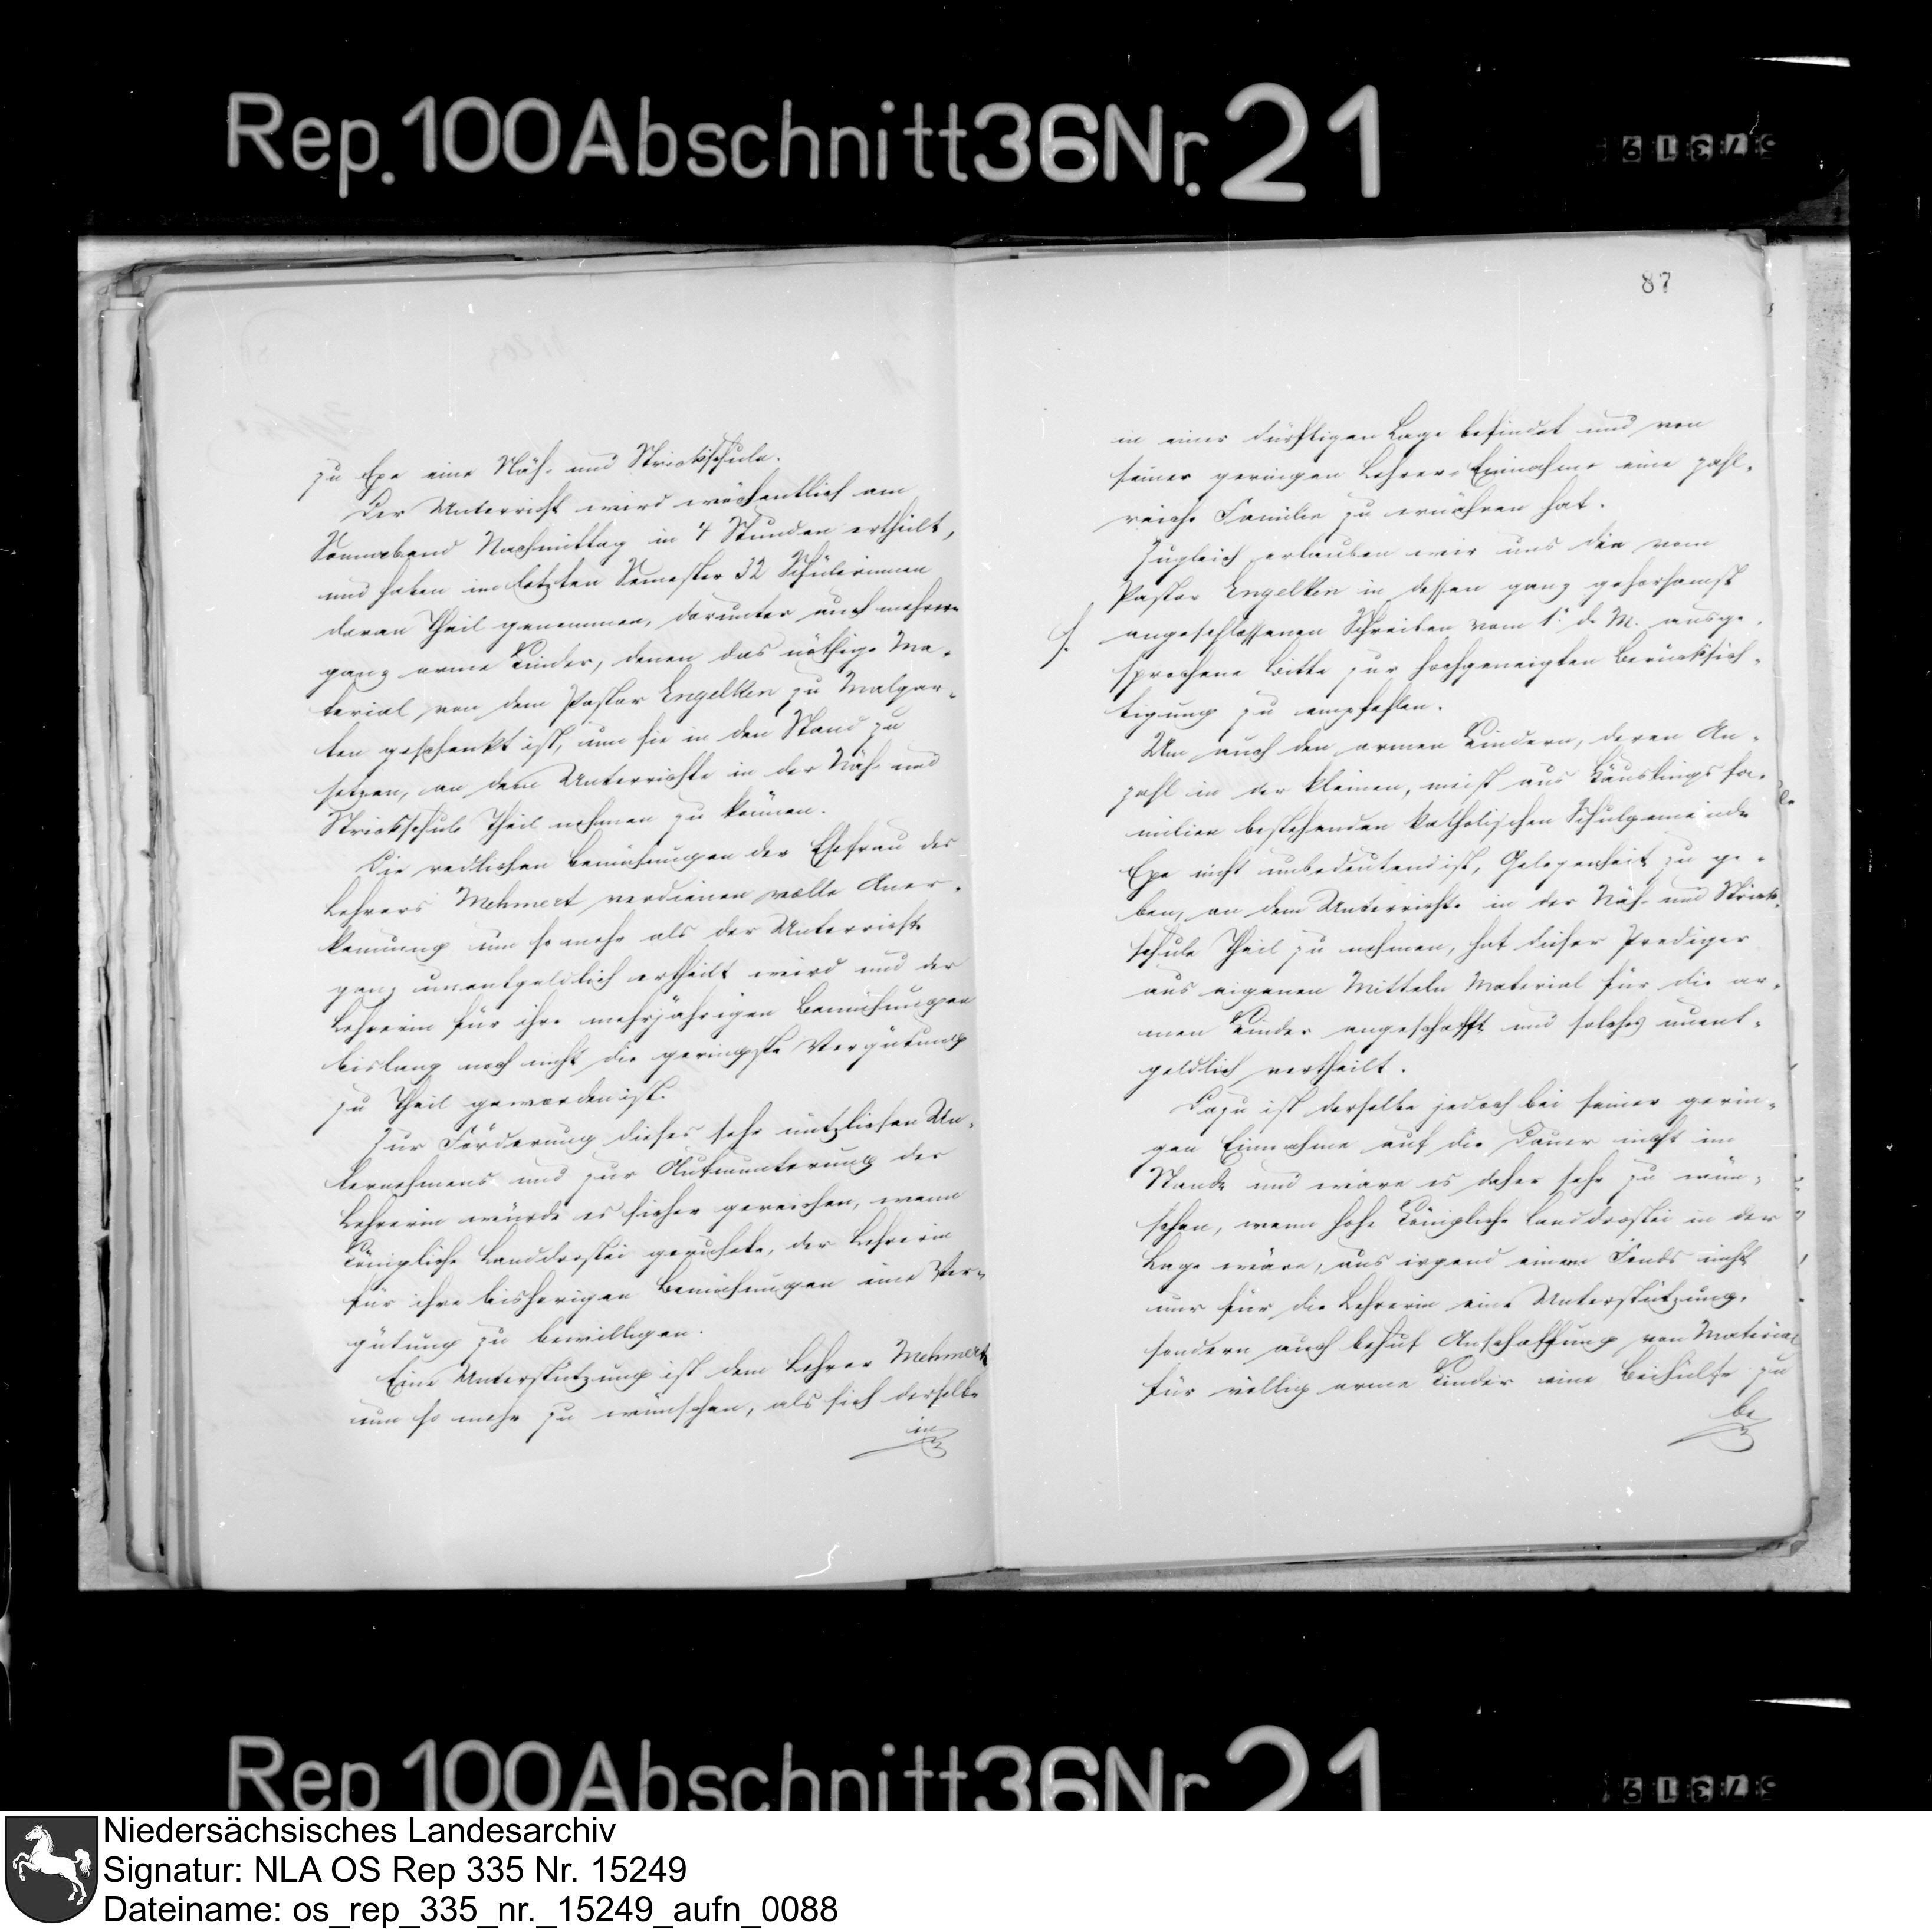 Rep. 100 Abschnitt 36 Nr. 21
57319
zu Epe eine Näh- und Strickschule.
Der Unterricht wird wöchentlich am
Sonnabend Nachmittag in 4 Stunden ertheilt,
und haben im letzten Semester 32 Schülerinnen
daran Theil genommen, darunter auch mehrere
ganz arme Kinder, denen das nöthige Ma-
terial von dem Pastor Engelken zu Malgar-
ten geschenkt ist, um sie in den Stand zu
setzen, an dem Unterrichte in der Näh- und
Strickschule Theil nehmen zu können.
Die redlichen Bemühungen der Ehefrau des
Lehrers Mehmert verdienen volle Aner-
kennung um so mehr als der Unterricht
ganz unentgeldlich ertheilt wird und der
Lehrerin für ihre mehrjährigen Bemühungen
bislang noch nicht die geringste Vergütung
zu Theil geworden ist.
Zur Förderung dieses sehr nützlichen Un-
ternehmens und zur Aufmunterung der
Lehrerin würde es sicher gereichen, wenn
Königliche Landdrostei geruhete, der Lehrerin
für ihre bisherigen Bemühungen eine Ver-
gütung zu bewilligen.
Eine Unterstützung ist dem Lehrer Mehmert
um so mehr zu wünschen, als sich derselbe
in
87
in einer dürftigen Lage befindet und von
seiner geringen Lehrer-Einnahme eine zahl-
reiche Familie zu ernähren hat.
Zugleich erlauben wir uns die vom
Pastor Engelken in dessen ganz gehorsamst
angeschlossenen Schreiben vom 1. d. M. ausge-
sprochene Bitte zur hochgeneigten Berücksich-
tigung zu empfehlen.
Um auch den armen Kindern, deren An-
zahl in der kleinen, meist aus Häuslings fa-
milien bestehenden katholischen Schulgemeinde
Epe nicht unbedeutend ist, Gelegenheit zu ge-
ben, an dem Unterrichte in der Näh- und Strick-
schule Theil zu nehmen, hat dieser Prediger
aus eigenen Mitteln Material für die ar-
men Kinder angeschafft und solches unent-
geldlich vertheilt.
Dazu ist derselbe jedoch bei seiner gerin-
gen Einnahme auf die Dauer nicht im
Stande und wäre es daher sehr zu wün-
schen, wenn hohe Königliche Landdrostei in der
Lage wäre, aus irgend einem Fonds nicht
nur für die Lehrerin eine Unterstützung,
sondern auch behuf Anschaffung von Material
für völlig arme Kinder eine Beihülfe zu
be
Rep. 100 Abschnitt 36 Nr. 21
57319
Niedersächsisches Landesarchiv
Signatur: NLA OS Rep 335 Nr. 15249
Dateiname: os_rep_335_nr._15249_aufn_0088